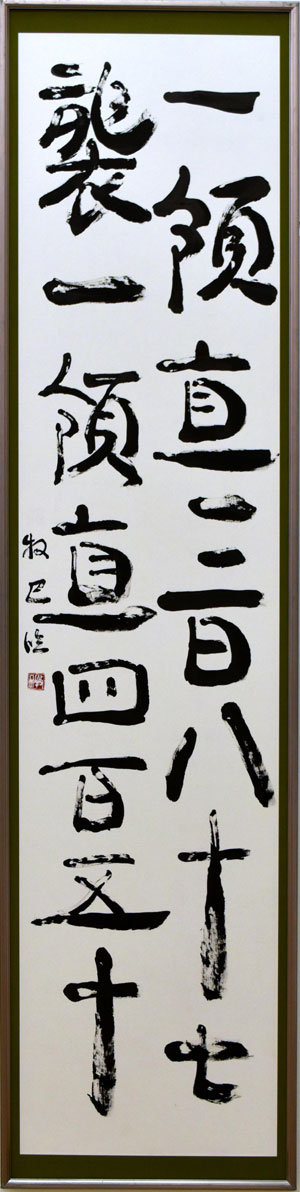 一領直二百八十七
襲一領直四百五十
牧巴臨